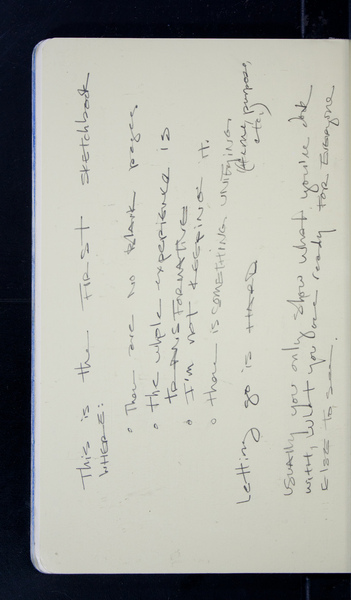 This is the FIRST sketchbook
WHERE:
• There are NO blank pages.
• The whole experience is
TRANSFORMATIVE
• I'm not KEEPING IT.
• there is something UNIFYING
(theme, purpose,
etc.)
Letting go is HARD
USUALLY you only show what you've
with, what you are ready FOR EVERYONE
ELSE TO SEE.